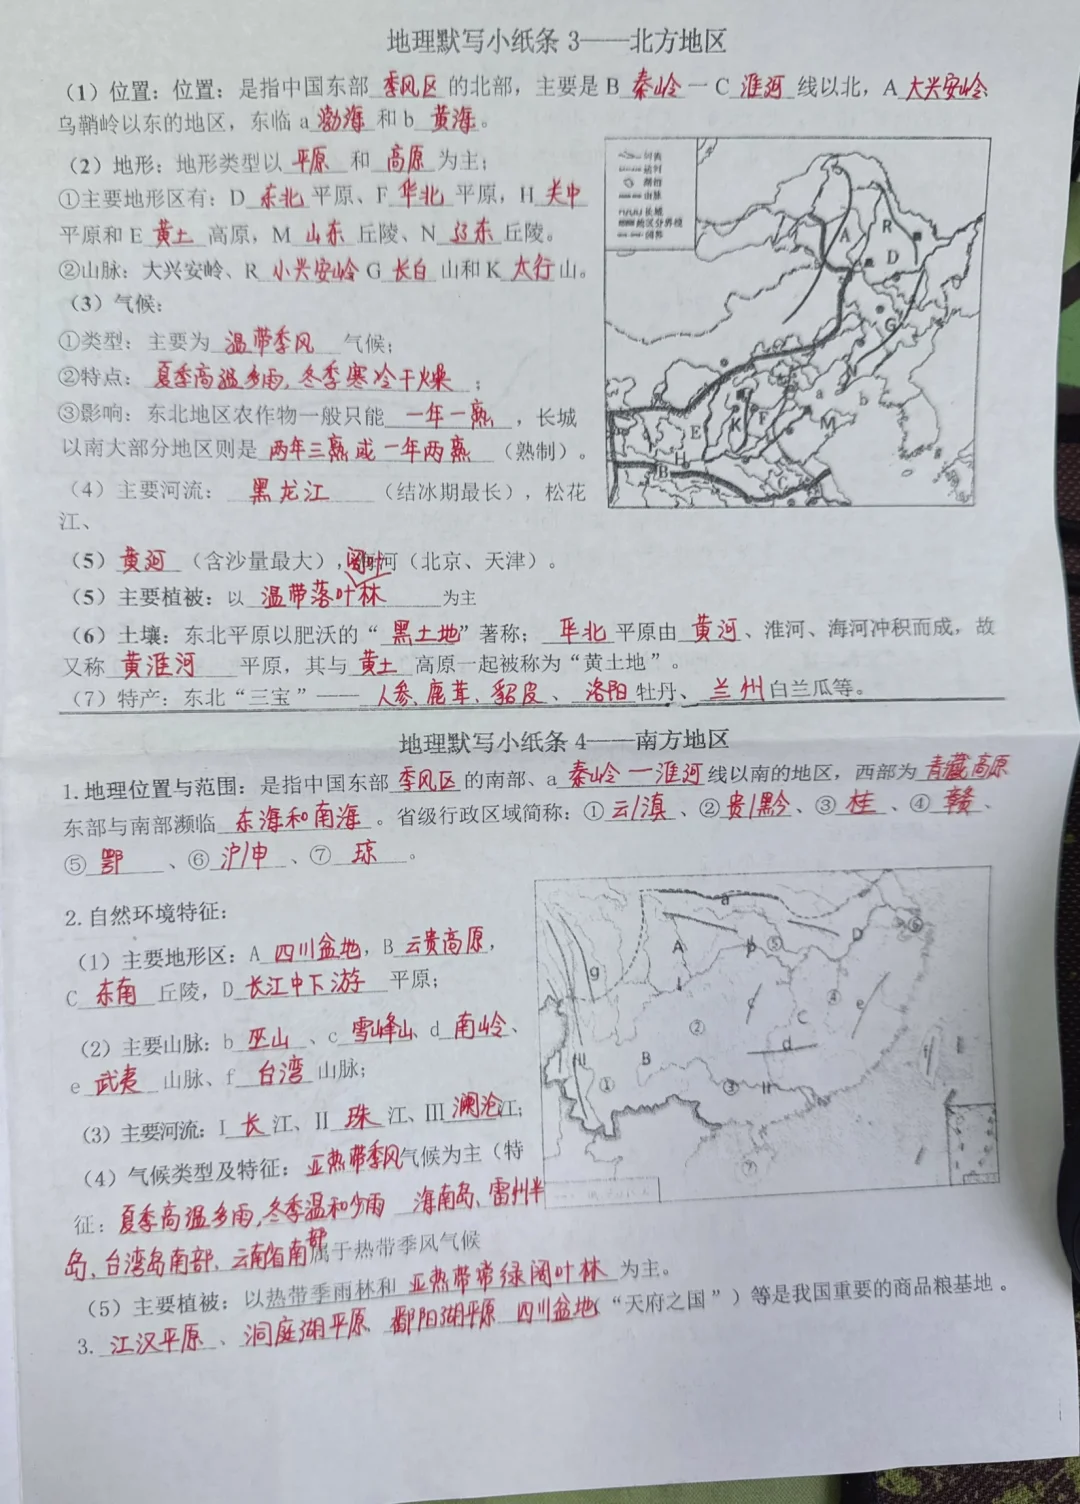 地理默写小纸条 3——北方地区
(1) 位置：位置：是指中国东部 季风区 的北部，主要是 B 秦岭 一 C 淮河 线以北，A 大兴安岭
乌鞘岭以东的地区，东临 a 渤海 和 b 黄海。
(2) 地形：地形类型以 平原 和 高原 为主；
①主要地形区有：D 东北 平原、F 华北 平原，H 关中
平原和 E 黄土 高原，M 山东 丘陵、N 辽东 丘陵。
②山脉：大兴安岭、R 小兴安岭 G 长白 山和 K 太行 山。
(3) 气候：
①类型：主要为 温带季风 气候；
②特点：夏季高温多雨，冬季寒冷干燥；
③影响：东北地区农作物一般只能 一年一熟，长城
以南大部分地区则是 两年三熟或一年两熟（熟制）。
(4) 主要河流：黑龙江（结冰期最长），松花
江、
(5) 黄河（含沙量最大），河（北京、天津）。
(5) 主要植被：以 温带落叶阔叶林 为主
(6) 土壤：东北平原以肥沃的“黑土地”著称；华北 平原由 黄河、淮河、海河冲积而成，故
又称 黄淮河 平原，其与 黄土 高原一起被称为“黄土地”。
(7) 特产：东北“三宝”—— 人参、鹿茸、貂皮、洛阳 牡丹、兰州 白兰瓜等。
河流
运河
湖泊
山脉
长城
地区分界线
国界
A
R
D
G
a
b
E
K
F
M
H
B
C
地理默写小纸条 4——南方地区
1. 地理位置与范围：是指中国东部 季风区 的南部、a 秦岭一淮河 线以南的地区，西部为 青藏高原
东部与南部濒临 东海和南海。省级行政区域简称：① 云/滇、② 贵/黔、③ 桂、④ 赣、
⑤ 鄂、⑥ 沪/申、⑦ 琼。
2. 自然环境特征：
(1) 主要地形区：A 四川盆地，B 云贵高原，
C 东南 丘陵，D 长江中下游 平原；
(2) 主要山脉：b 巫山、c 雪峰山、d 南岭、
e 武夷 山脉、f 台湾 山脉；
(3) 主要河流：I 长 江、II 珠 江、III 澜沧江；
(4) 气候类型及特征：亚热带季风气候为主（特
征：夏季高温多雨，冬季温和少雨 海南岛、雷州半
岛、台湾岛南部、云南省南部属于热带季风气候
(5) 主要植被：以热带季雨林和 亚热带常绿阔叶林 为主。
3. 江汉平原、洞庭湖平原 鄱阳湖平原 四川盆地（“天府之国”）等是我国重要的商品粮基地。
a
A
b
⑤
D
⑥
g
I
c
C
④
e
②
d
III
B
①
③
II
f
⑦